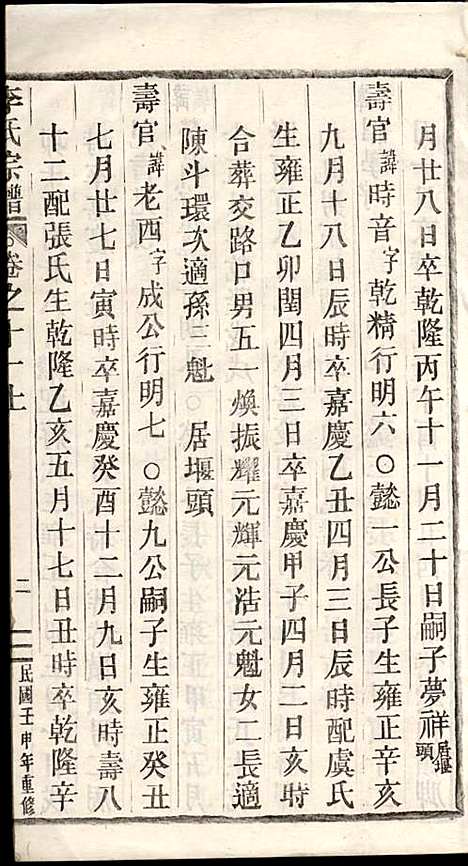 月廿八日卒乾隆丙午十一月二十日嗣子夢祥居堰頭
壽官諱時音字乾精行明六○懿一公長子生雍正辛亥
九月十八日辰時卒嘉慶乙丑四月三日辰時配虞氏
生雍正乙卯閏四月三日卒嘉慶甲子四月二日亥時
合葬交路口男五一煥振耀元輝元浩元魁女二長適
陳斗環次適孫三魁○居堰頭
壽官諱老四字成公行明七○懿九公嗣子生雍正癸丑
七月廿七日寅時卒嘉慶癸酉十二月九日亥時壽八
十二配張氏生乾隆乙亥五月十七日丑時卒乾隆辛
李氏宗譜 卷之十一上 二 民國壬申年重修